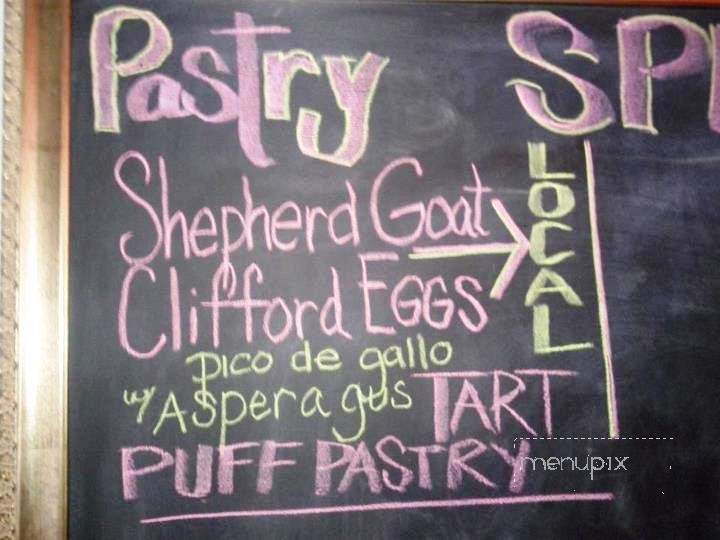 Pastry SP
Shepherd Goat
Clifford EGGS
LOCAL
pico de gallo
w/ Asperagus TART
PUFF PASTRY
menupix